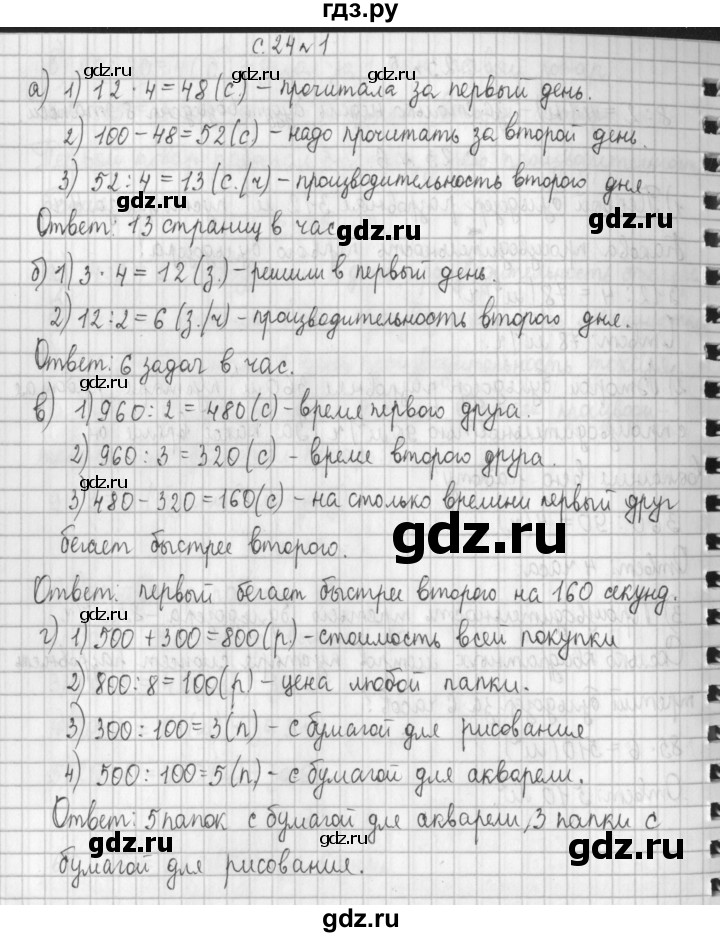 гдз.ру
с.24 №1
gdz.ru gdz.ru gdz.ru
а) 1) 12 · 4 = 48 (с) – прочитала за первый день.
2) 100 – 48 = 52 (с) – надо прочитать за второй день.
gdz.ru gdz.ru
3) 52 : 4 = 13 (с./ч) – производительность второго дня
gdz.ru
Ответ: 13 страниц в час
gdz.ru gdz.ru
б) 1) 3 · 4 = 12 (з.) – решили в первый день.
gdz.ru
2) 12 : 2 = 6 (з./ч) – производительность второго дня.
Ответ: 6 задач в час.
gdz.ru gdz.ru
в) 1) 960 : 2 = 480 (с) – время первого друга.
2) 960 : 3 = 320 (с) – время второго друга.
gdz.ru gdz.ru
3) 480 – 320 = 160 (с) – на столько времени первый друг
gdz.ru
бегает быстрее второго.
Ответ: первый бегает быстрее второго на 160 секунд.
gdz.ru gdz.ru
г) 1) 500 + 300 = 800 (р) – стоимость всей покупки
2) 800 : 8 = 100 (р) – цена любой папки.
gdz.ru
3) 300 : 100 = 3 (п) – с бумагой для рисования
gdz.ru gdz.ru
4) 500 : 100 = 5 (п) – с бумагой для акварели.
Ответ: 5 папок с бумагой для акварели, 3 папки с
gdz.ru gdz.ru
бумагой для рисования.
gdz.ru